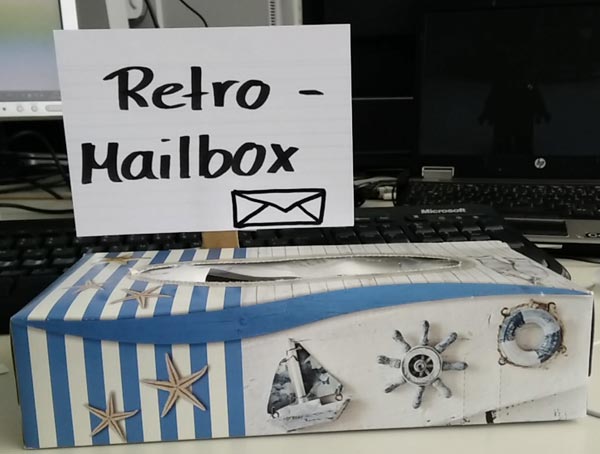 Retro -
Mailbox
Microsoft
hp